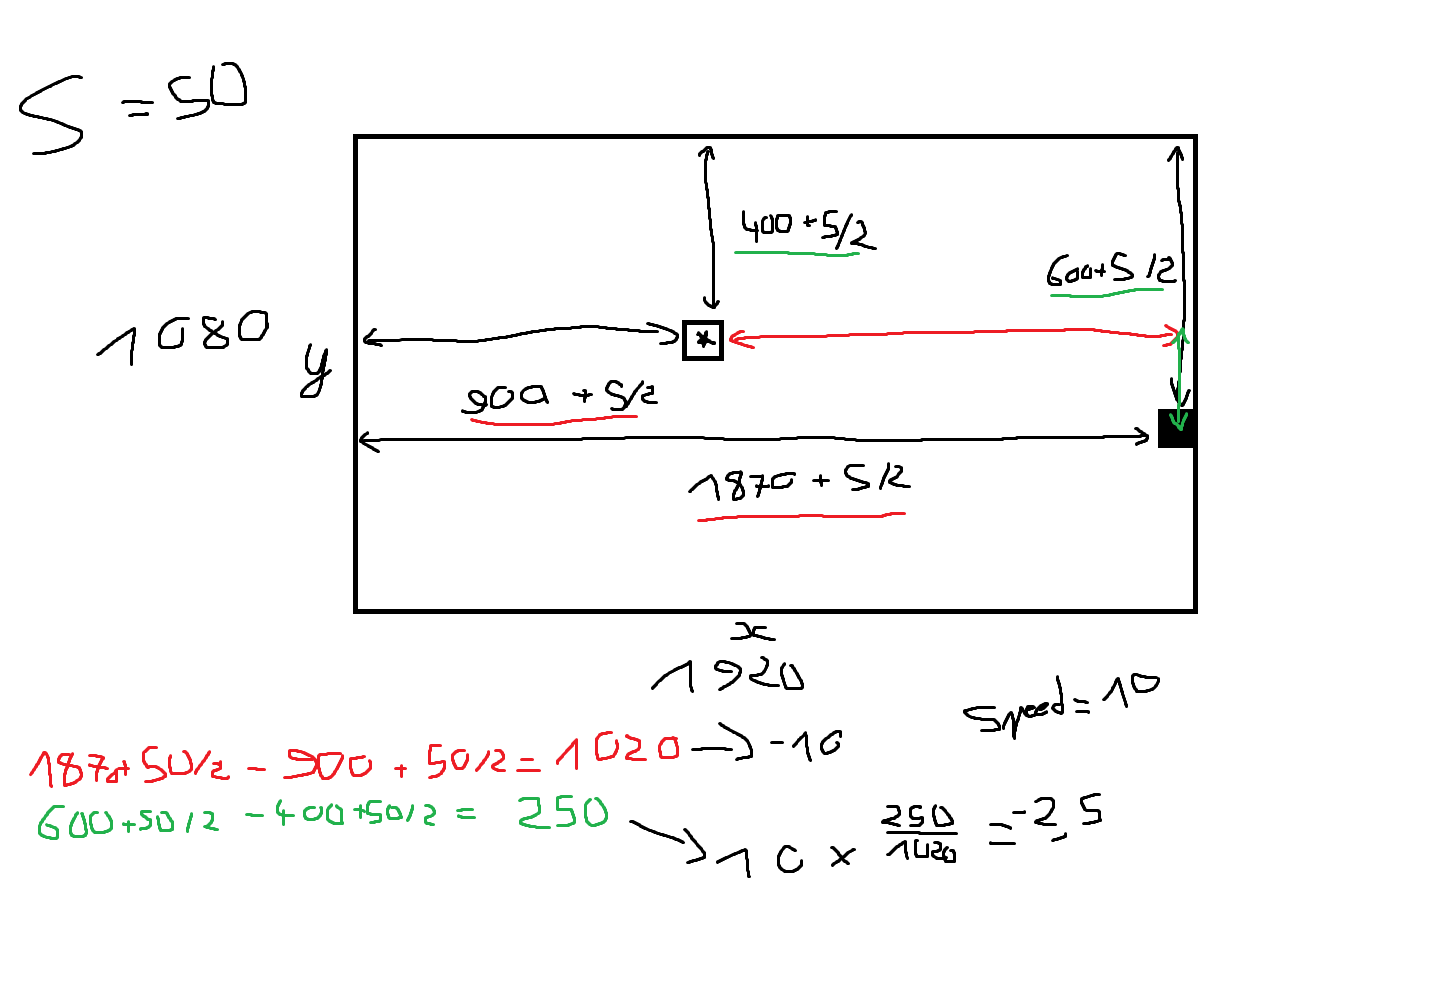 S = 50
400 + S/2
600+S/2
1080
y
*
900 + S/2
1870 + S/2
x
1920
Speed = 10
1870+50/2 - 900 + 50/2 = 1020 → -10
600+50/2 - 400+50/2 = 250
→ 10 x 250/1020 = -2.5